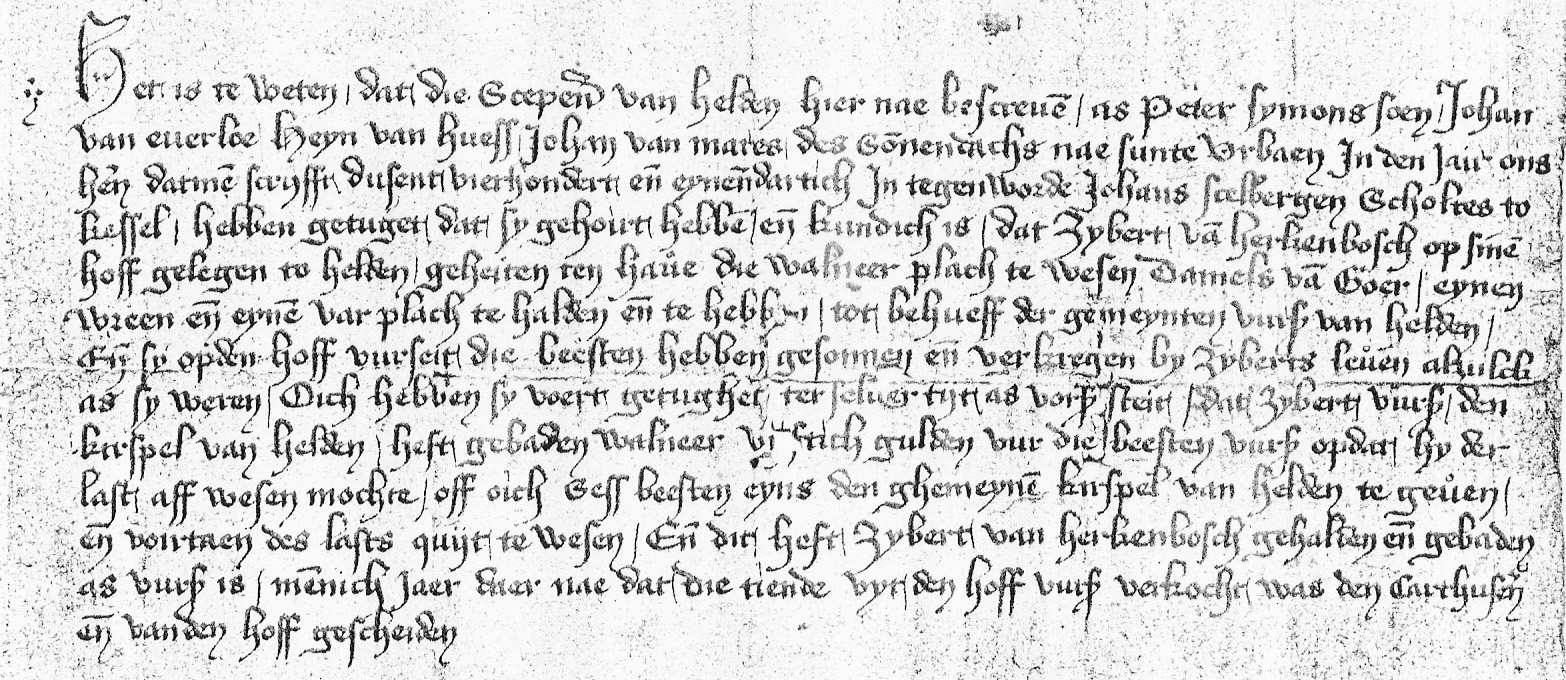 Het is te weten / dat die Scepen̄ van helden hier nae bescreuē / as Peter symons soen / Johan
van euerloe Heyn van huess / Johan van mares des Sōnendachs nae sunte Vrbaen In den Jair ons
her̄n datmē scrijfft dusent vierhondert en̄ eynen̄dartich In tegenworde Johans stelbergen Scholtes to
kessel / hebben getuget dat sy gehoirt hebbē / en̄ kundich is / dat Zybert vā herkenbosch op sinē
hoff gelegen to helden / geheiten ten haue die walneer plach te wesen Daniels vā Goer / eynen
wreen en̄ eynē var plach te halden en̄ te hebben / tot behueff der gemeynten vurs̄ van helden /
En̄ sy opden hoff vurseit die beesten hebben gesonnen en̄ verkregen by Zyberts leuen alwilck
as sy weren / Oich hebben sy voert getughet ter seluer tijt as vors̄ steit / dat Zybert vurs̄ / den
kirspel van helden / heft gebaden walneer tich gulden vur die beesten vurs̄ opdat hy der
last aff wesen mochte / off oich Sess beesten eyns den ghemeynē kirspel van helden te geuen /
en̄ voirtaen des lasts quijt te wesen / En̄ dit heft Zybert van herkenbosch gehalden en̄ gebaden
as vurs̄ is / mēnich Jaer daer nae dat die tiende vyt den hoff vurs̄ verkocht was den Carthusen̄
en̄ vanden hoff gescheiden